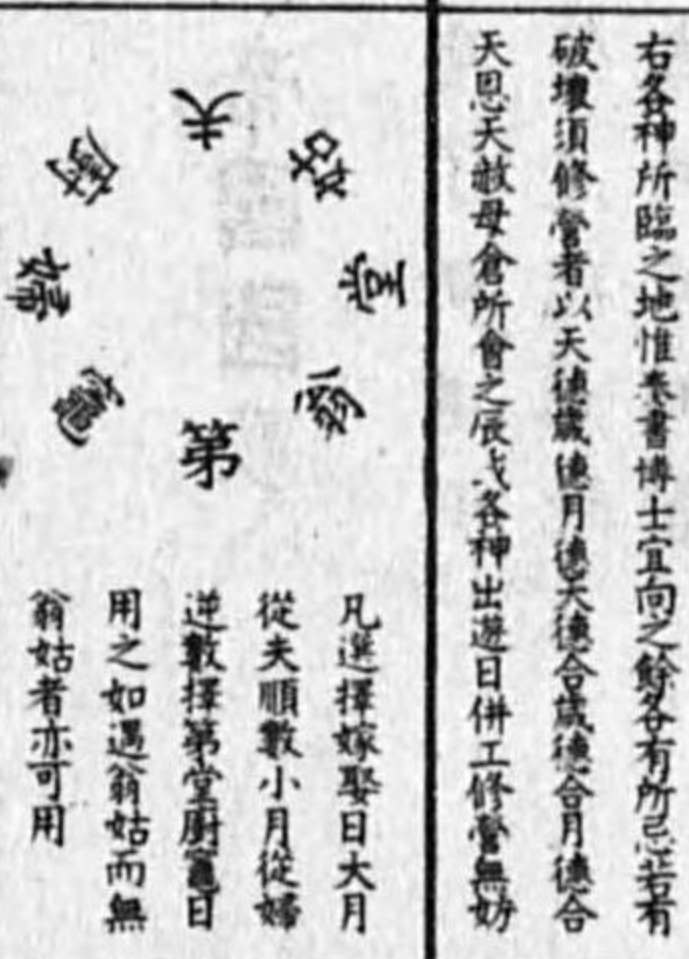 右各神所臨之地惟奏書博士宜向之餘各有所忌若有
破壞須修營者以天德歲德月德天德合歲德合月德合
天恩天赦母倉所會之辰或各神出遊日併工修營無妨
夫
姑
堂
翁
第
竈
婦
廚
凡選擇嫁娶日大月
從夫順數小月從婦
逆數擇第堂廚竈日
用之如遇翁姑而無
翁姑者亦可用